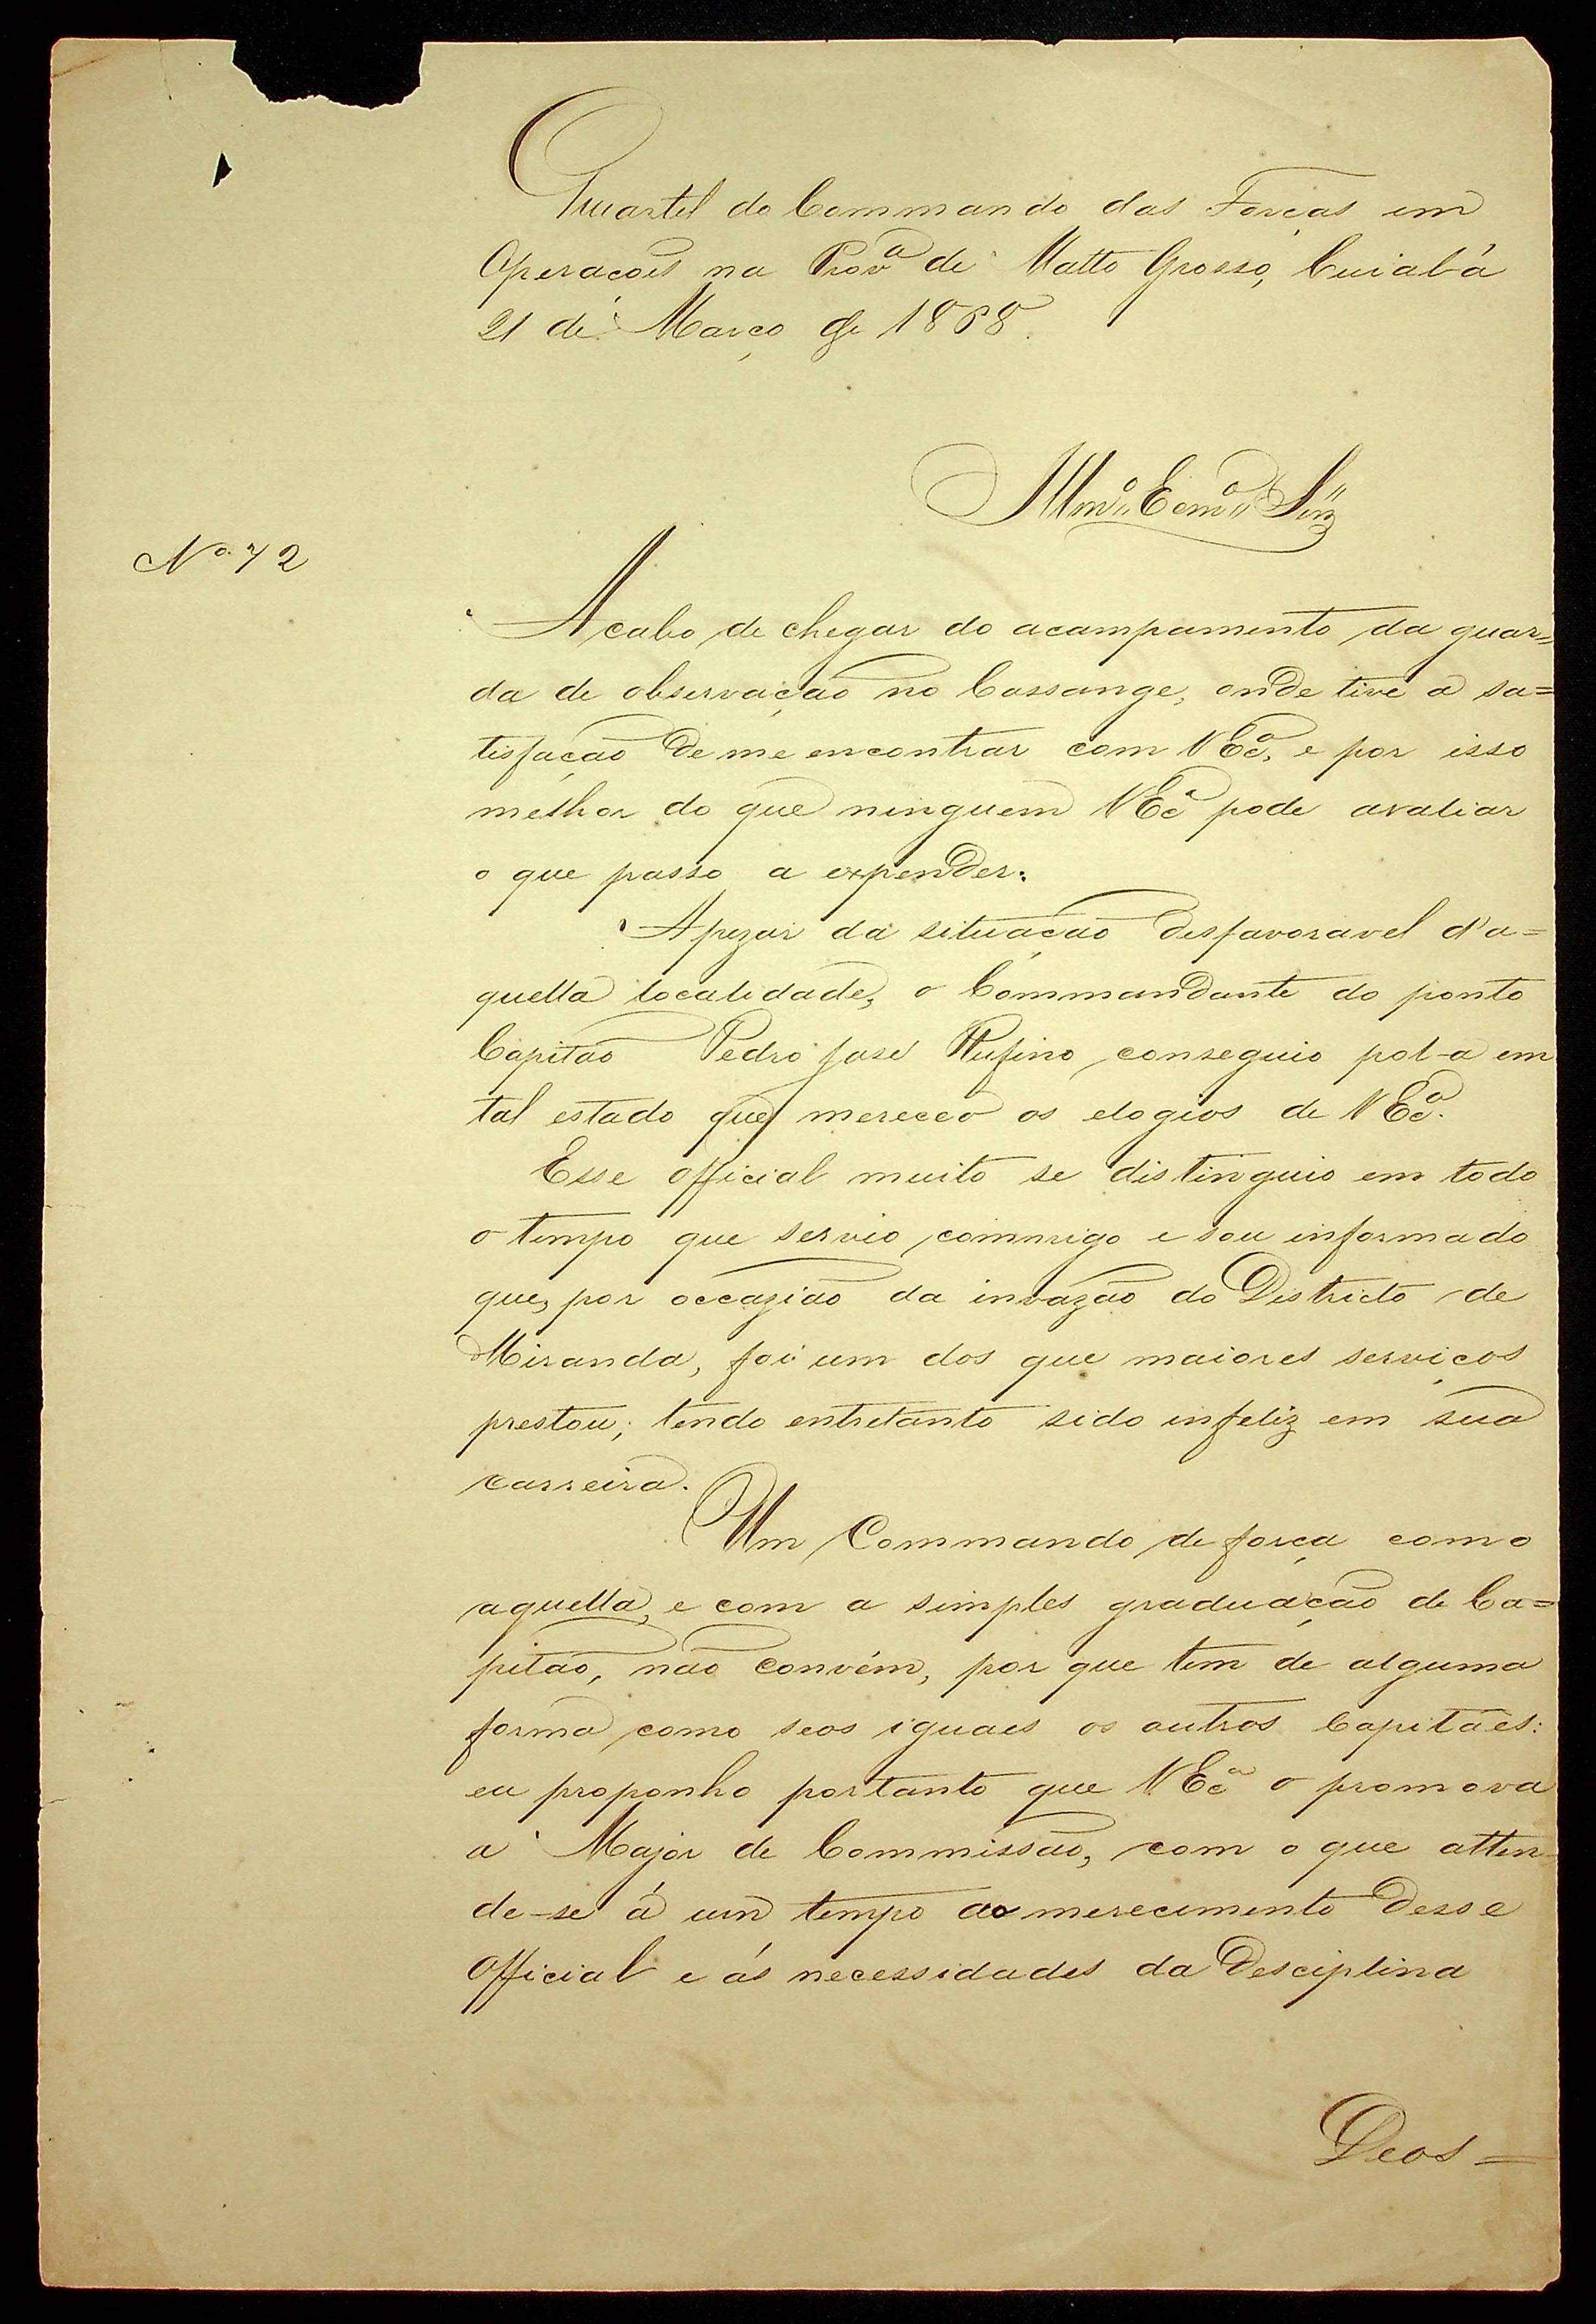 Quartel do Commando das Forças em
Operações na Prov.ª de Matto Grosso, Cuiabá
21 de Março de 1868.
Illm.º Exm.º Snr.
Nº 72
Acabo de chegar do acampamento da guar=
da de observação no Cassange, onde tive a sa=
tisfação de me encontrar com V Ex.ª, e por isso
melhor do que ninguem V Ex.ª pode avaliar
o que passo a expender:
Apezar da situação desfavoravel d'a=
quella localidade, o Commandante do ponto
Capitão Pedro José Rufino, conseguio pol-a em
tal estado que mereceo os elogios de V Ex.ª.
Esse official muito se distinguio em todo
o tempo que servio commigo e sou informado
que, por occazião da invazão do Districto de
Miranda, foi um dos que maiores serviços
prestou; tendo entretanto sido infeliz em sua
carreira.
Um Commando de força como
aquella, e com a simples graduação de Ca=
pitão, não convém, por que tem de alguma
forma como seos iguaes os outros Capitães:
eu proponho portanto que V Ex.ª o promova
a Major de Commissão, com o que atten=
de-se á um tempo ao merecimento desse
Official e ás necessidades da desciplina
Deos=